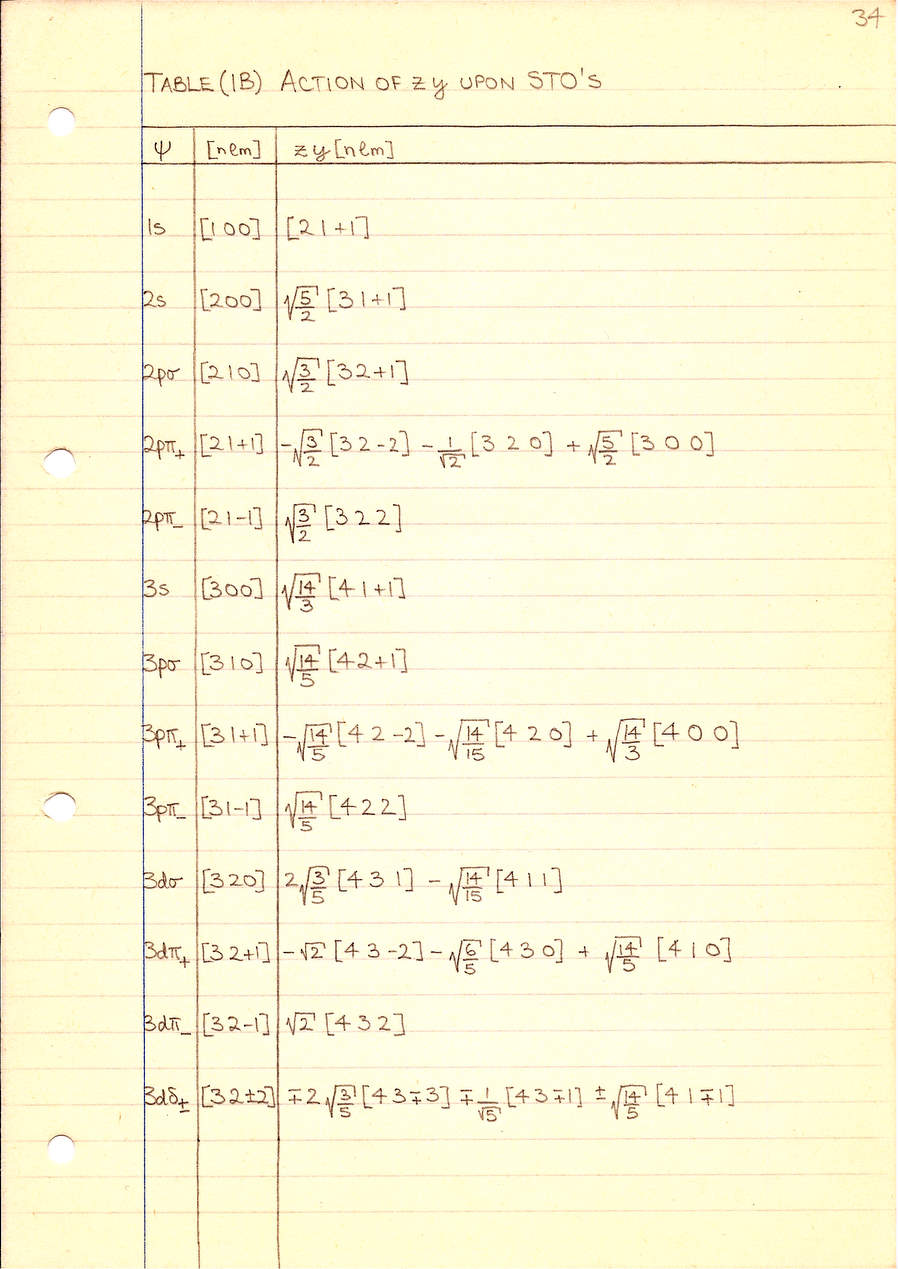 34
TABLE (1B) ACTION OF zy UPON STO'S
ψ [nℓm] zy[nℓm]
1s [100] [21+1]
2s [200] √(5/2) [31+1]
2pσ [210] √(3/2) [32+1]
2pπ₊ [21+1] -√(3/2) [32-2] - 1/√2 [320] + √(5/2) [300]
2pπ₋ [21-1] √(3/2) [322]
3s [300] √(14/3) [41+1]
3pσ [310] √(14/5) [42+1]
3pπ₊ [31+1] -√(14/5) [42-2] - √(14/15) [420] + √(14/3) [400]
3pπ₋ [31-1] √(14/5) [422]
3dσ [320] 2√(3/5) [431] - √(14/15) [411]
3dπ₊ [32+1] -√2 [43-2] - √(6/5) [430] + √(14/5) [410]
3dπ₋ [32-1] √2 [432]
3dδ± [32±2] ∓2√(3/5) [43∓3] ∓ 1/√5 [43∓1] ± √(14/5) [41∓1]